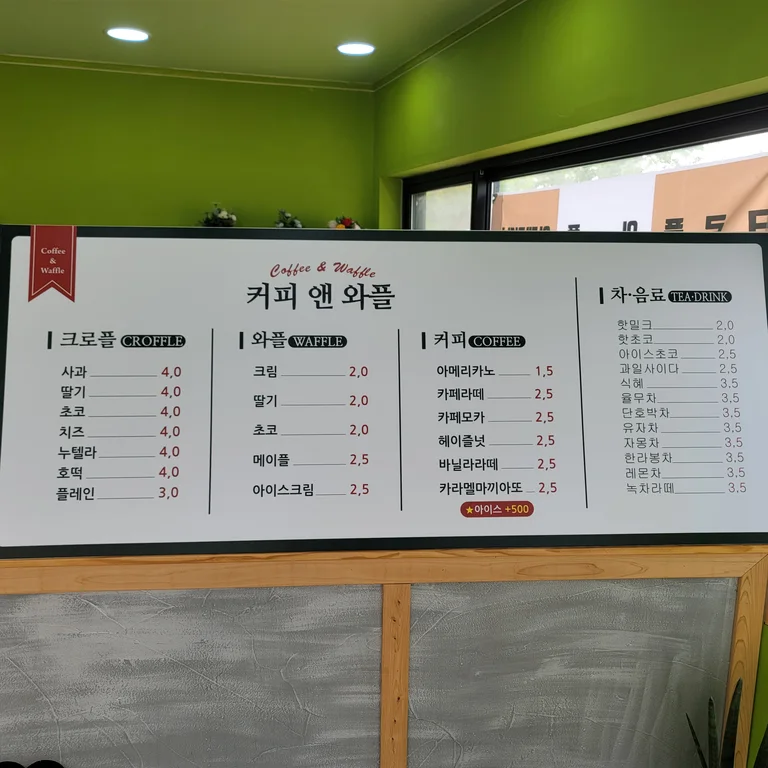 Coffee
&
Waffle
Coffee & Waffle
커피 앤 와플
크로플 CROFFLE
사과 4,0
딸기 4,0
초코 4,0
치즈 4,0
누텔라 4,0
호떡 4,0
플레인 3,0
와플 WAFFLE
크림 2,0
딸기 2,0
초코 2,0
메이플 2,5
아이스크림 2,5
커피 COFFEE
아메리카노 1,5
카페라떼 2,5
카페모카 2,5
헤이즐넛 2,5
바닐라라떼 2,5
카라멜마끼아또 2,5
★아이스 +500
차·음료 TEA·DRINK
핫밀크 2,0
핫초코 2,0
아이스초코 2,5
과일사이다 2,5
식혜 3,5
율무차 3,5
단호박차 3,5
유자차 3,5
자몽차 3,5
한라봉차 3,5
레몬차 3,5
녹차라떼 3,5